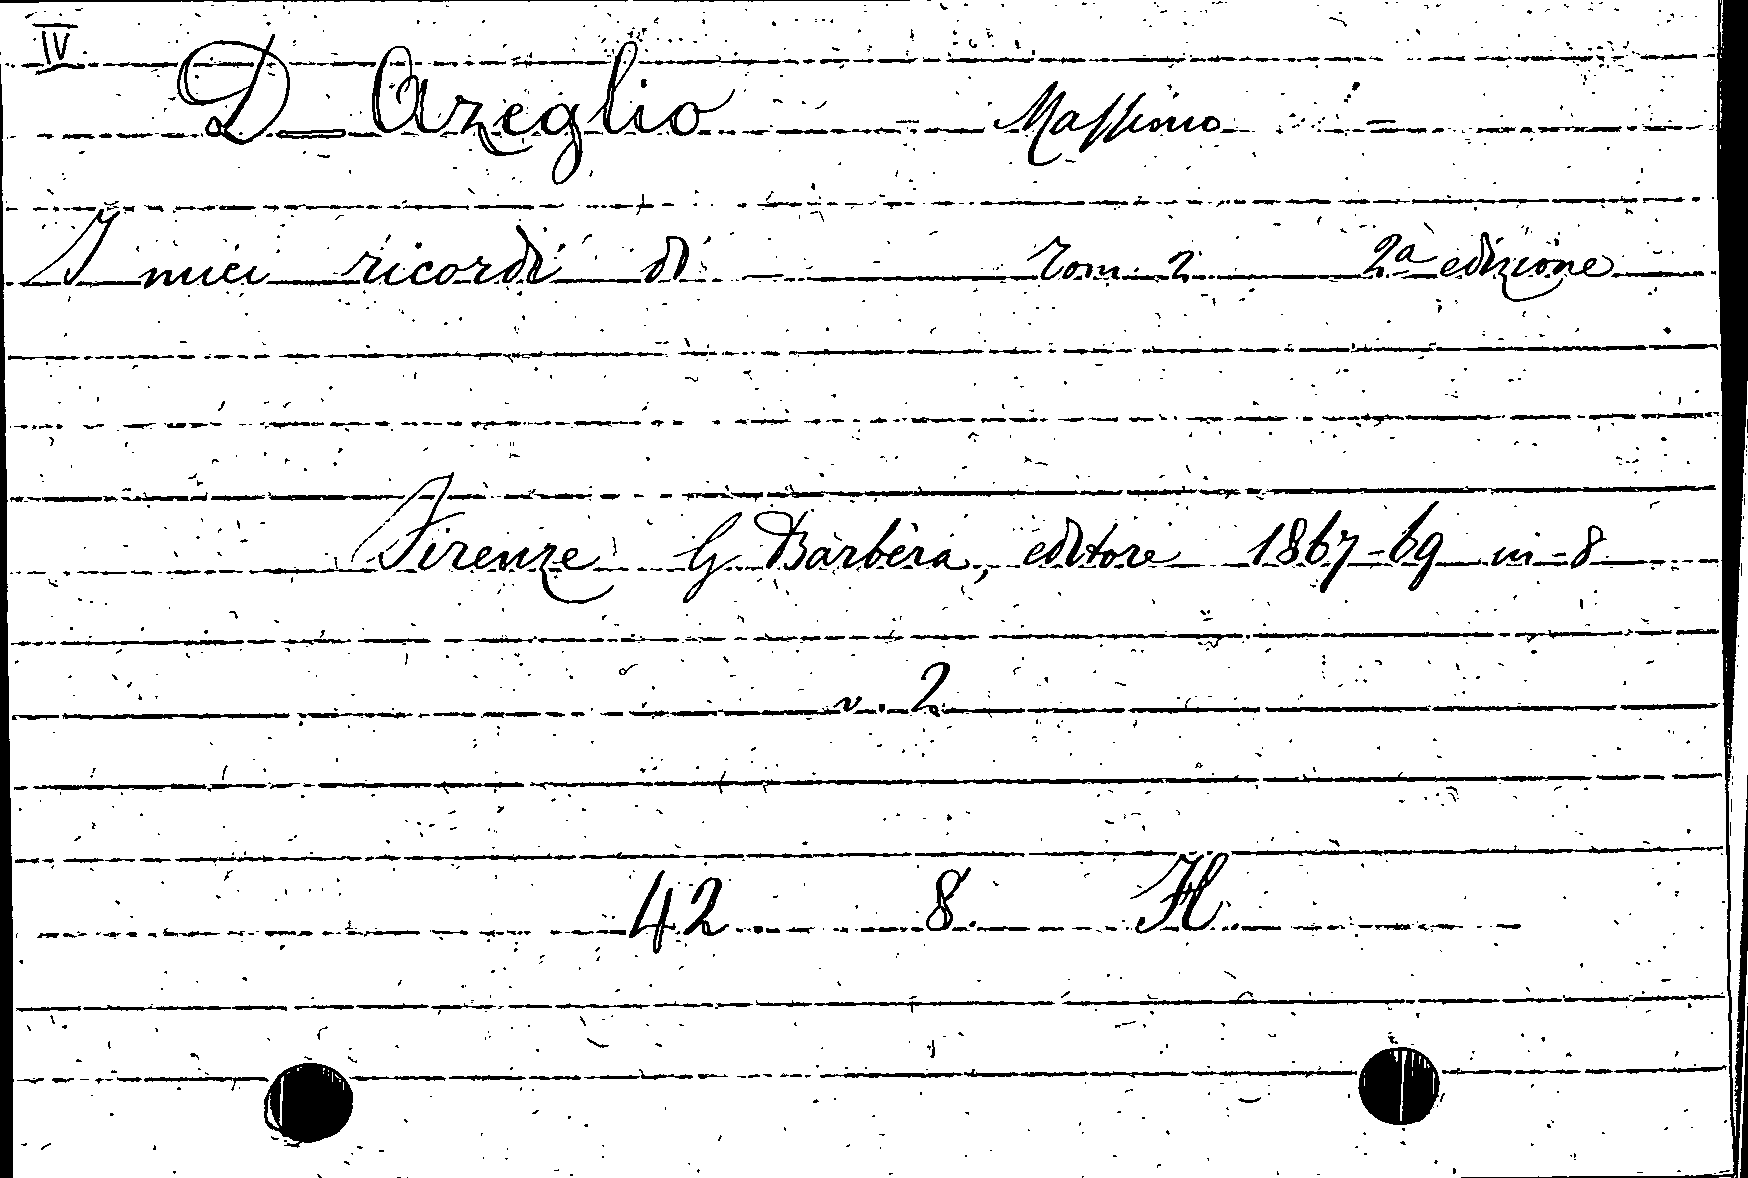 IV
D Azeglio - Massimo -
I miei ricordi di — Tom. 2 2ª edizione
Firenze G. Barbèra, editore 1867-69 in-8
v. 2
42 8. H.